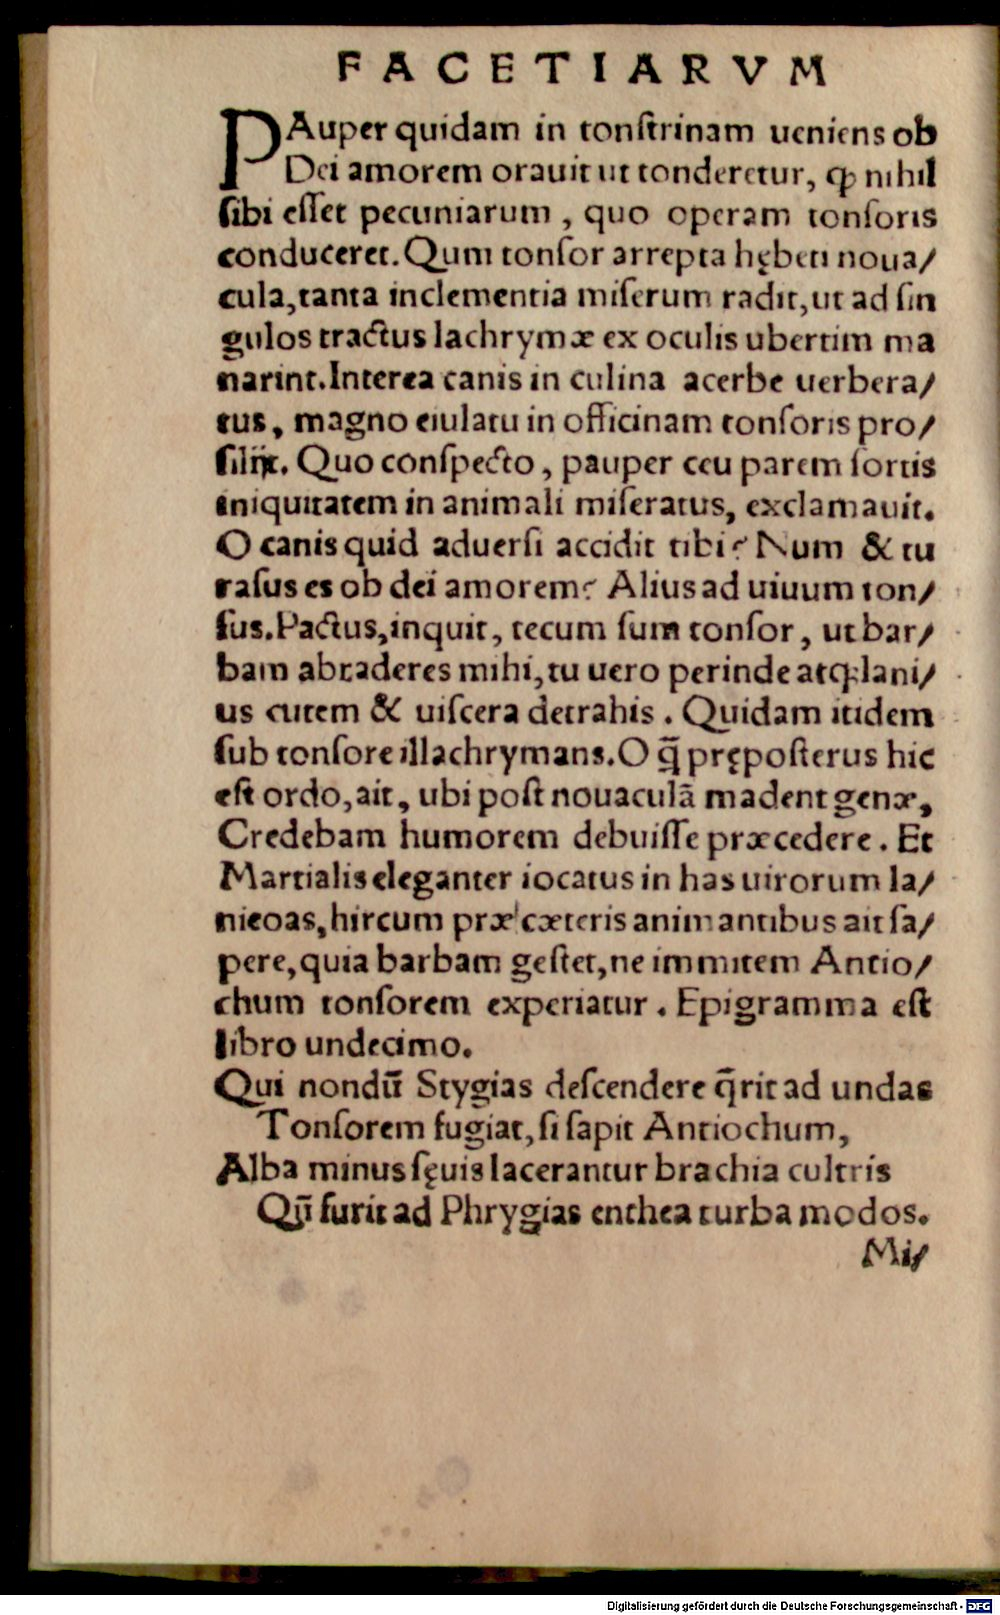 FACETIARVM
PAuper quidam in tonſtrinam ueniens ob
Dei amorem orauit ut tonderetur, ꝙ nihil
ſibi eſſet pecuniarum, quo operam tonſoris
conduceret. Qum tonſor arrepta hębeti noua/
cula, tanta inclementia miſerum radit, ut ad ſin
gulos tractus lachrymæ ex oculis ubertim ma
narint. Interea canis in culina acerbe uerbera/
tus, magno eiulatu in officinam tonſoris pro/
ſilijt. Quo conſpecto, pauper ceu parem ſortis
iniquitatem in animali miſeratus, exclamauit.
O canis quid aduerſi accidit tibi? Num & tu
raſus es ob dei amorem? Alius ad uiuum ton/
ſus. Pactus, inquit, tecum ſum tonſor, ut bar/
bam abraderes mihi, tu uero perinde atqꝫ lani/
us cutem & uiſcera detrahis. Quidam itidem
ſub tonſore illachrymans. O q̃ prępoſterus hic
eſt ordo, ait, ubi poſt nouaculã madent genæ,
Credebam humorem debuiſſe præcedere. Et
Martialis eleganter iocatus in has uirorum la/
nieoas, hircum præ cæteris animantibus ait ſa/
pere, quia barbam geſtet, ne immitem Antio/
chum tonſorem experiatur. Epigramma eſt
libro undecimo.
Qui nondũ Stygias deſcendere q̃rit ad undas
Tonſorem fugiat, ſi ſapit Antiochum,
Alba minus ſęuis lacerantur brachia cultris
Qũ furit ad Phrygias enthea turba modos.
Mi/
Digitalisierung gefördert durch die Deutsche Forschungsgemeinschaft - DFG